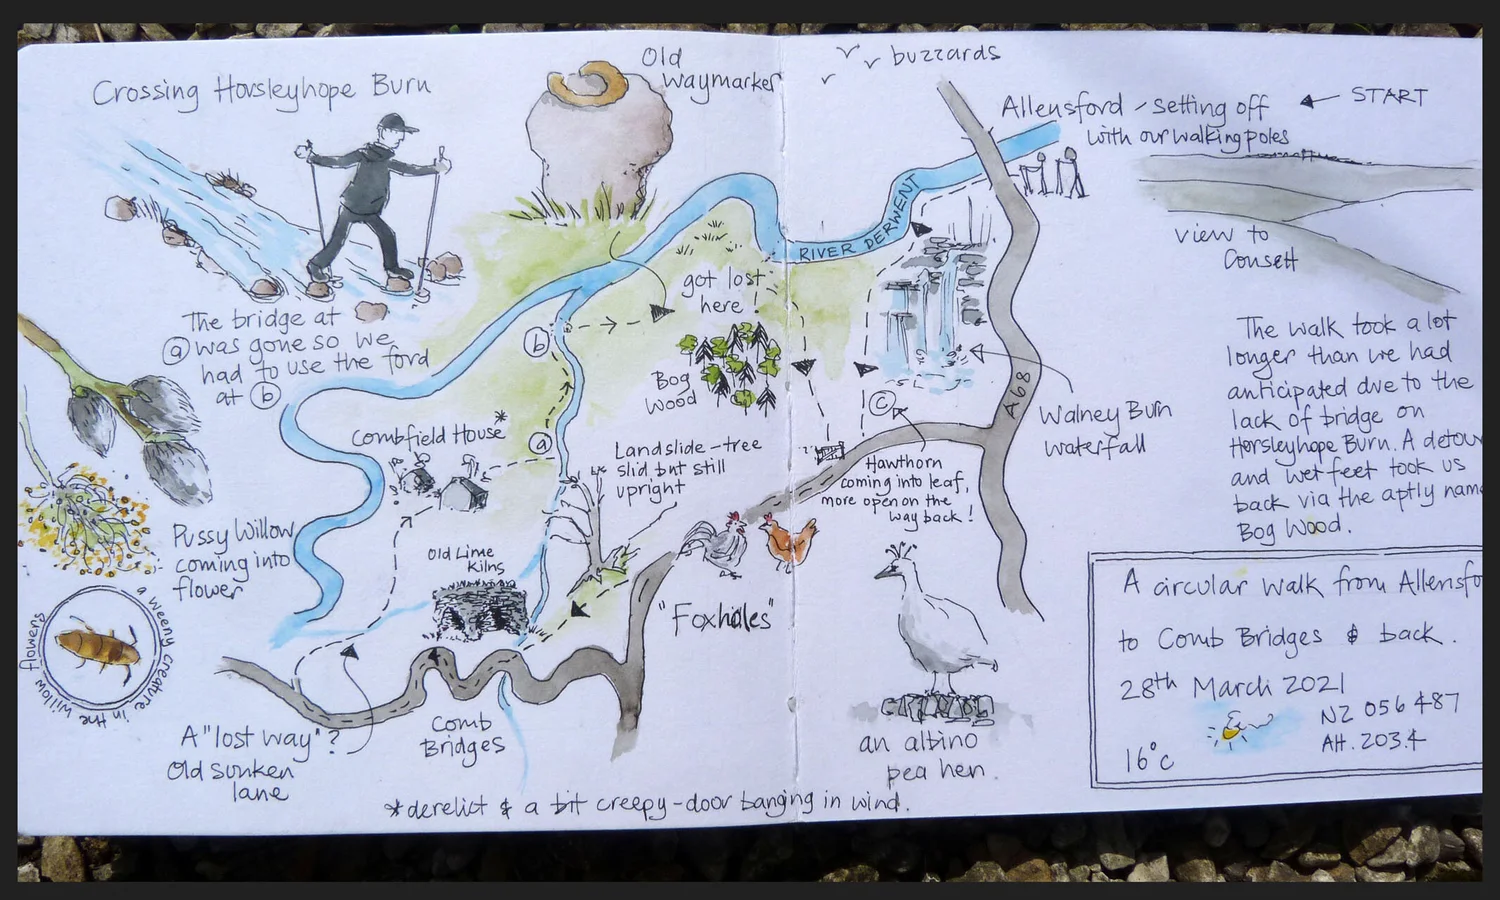 Crossing Horsleyhope Burn
The bridge at
ⓐ was gone so we
had to use the ford
at ⓑ
Old
Waymarker
buzzards
Allensford - setting off
with our walking poles
START
RIVER DERWENT
view to
Consett
got lost
here!
ⓑ
Bog
Wood
A68
ⓒ
Walney Burn
waterfall
Combfield House*
ⓐ
Landslide - tree
slid but still
upright
Hawthorn
coming into leaf,
more open on the
way back!
The walk took a lot
longer than we had
anticipated due to the
lack of bridge on
Horsleyhope Burn. A detour
and wet feet took us
back via the aptly name
Bog Wood.
Pussy Willow
coming into
flower
a weeny creature in the willow flowers
Old Lime
Kilns
"Foxholes"
A "lost way"?
Old sunken
lane
Comb
Bridges
an albino
pea hen.
*derelict & a bit creepy-door banging in wind.
A circular walk from Allensfo
to Comb Bridges & back.
28th March 2021
NZ 056 487
Alt. 203.4
16°c